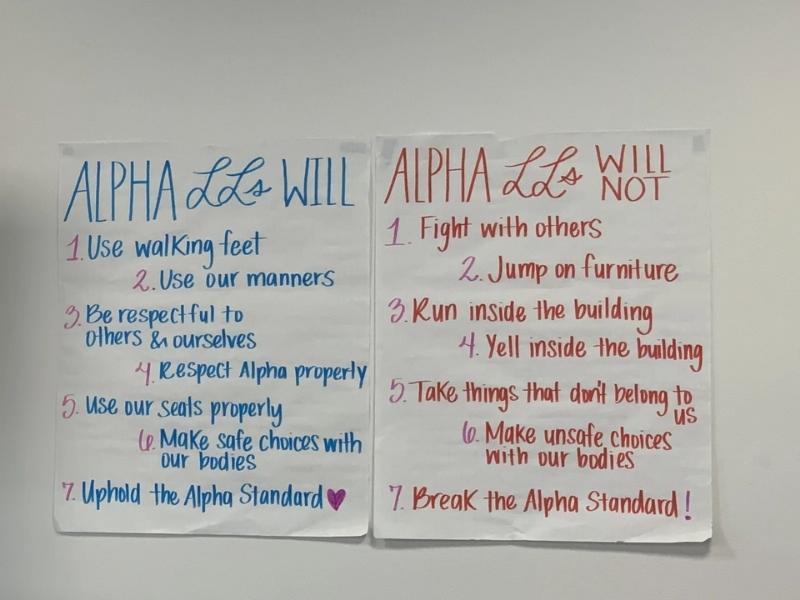 ALPHA LLs WILL
1. Use walking feet
2. Use our manners
3. Be respectful to
others & ourselves
4. Respect Alpha properly
5. Use our seats properly
6. Make safe choices with
our bodies
7. Uphold the Alpha Standard♥
ALPHA LLs WILL NOT
1. Fight with others
2. Jump on furniture
3. Run inside the building
4. Yell inside the building
5. Take things that don't belong to
us
6. Make unsafe choices
with our bodies
7. Break the Alpha Standard!